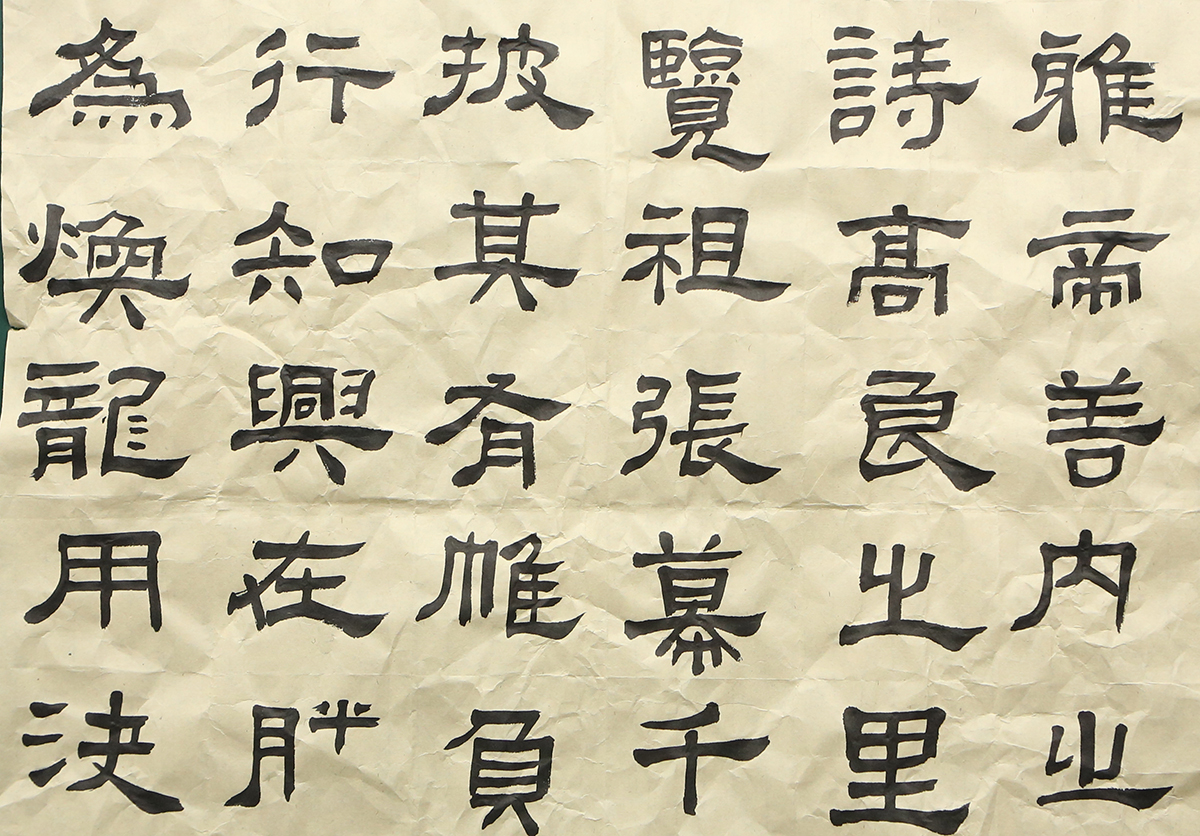 為行披覽詩雅
煥知其祖高帝
龍興有張良善
用在帷幕之内
決胖負千里之